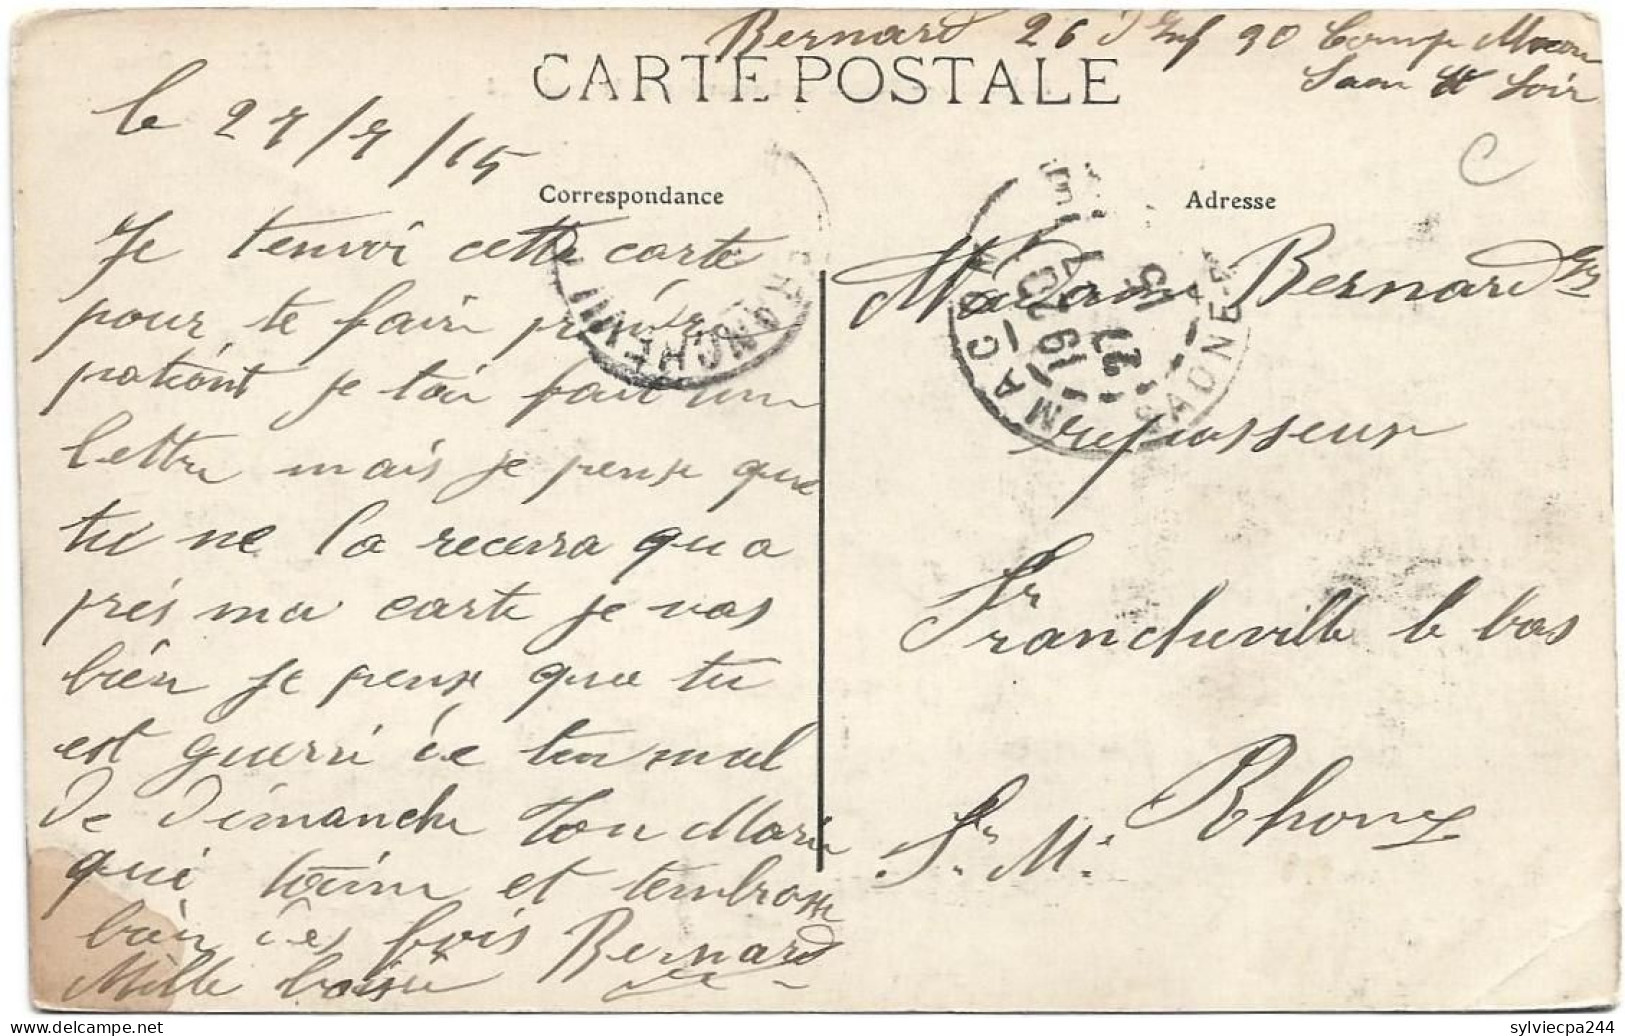 Bernard 26 d Inf 90 Comp Macon
Saon et Loir
CARTE POSTALE
le 27/7/15
Correspondance
Je tenvoi cette carte
pour te fair prendre
patiént je tai fait une
lettre mais je pense que
tu ne la recevra qu a
prés ma carte je vas
bién je pense que tu
est guerri de ton mal
De Dimanche ton Marie
qui táime et tembrasse
bién des fois Bernard
Mille baisée
FRANCHEVILLE
Adresse
MACON
SAONE-ET
19 20
27 7
15
Madame Bernard
repasseur
Francheville le bas
Rhone
S. M.
sylviecpa244